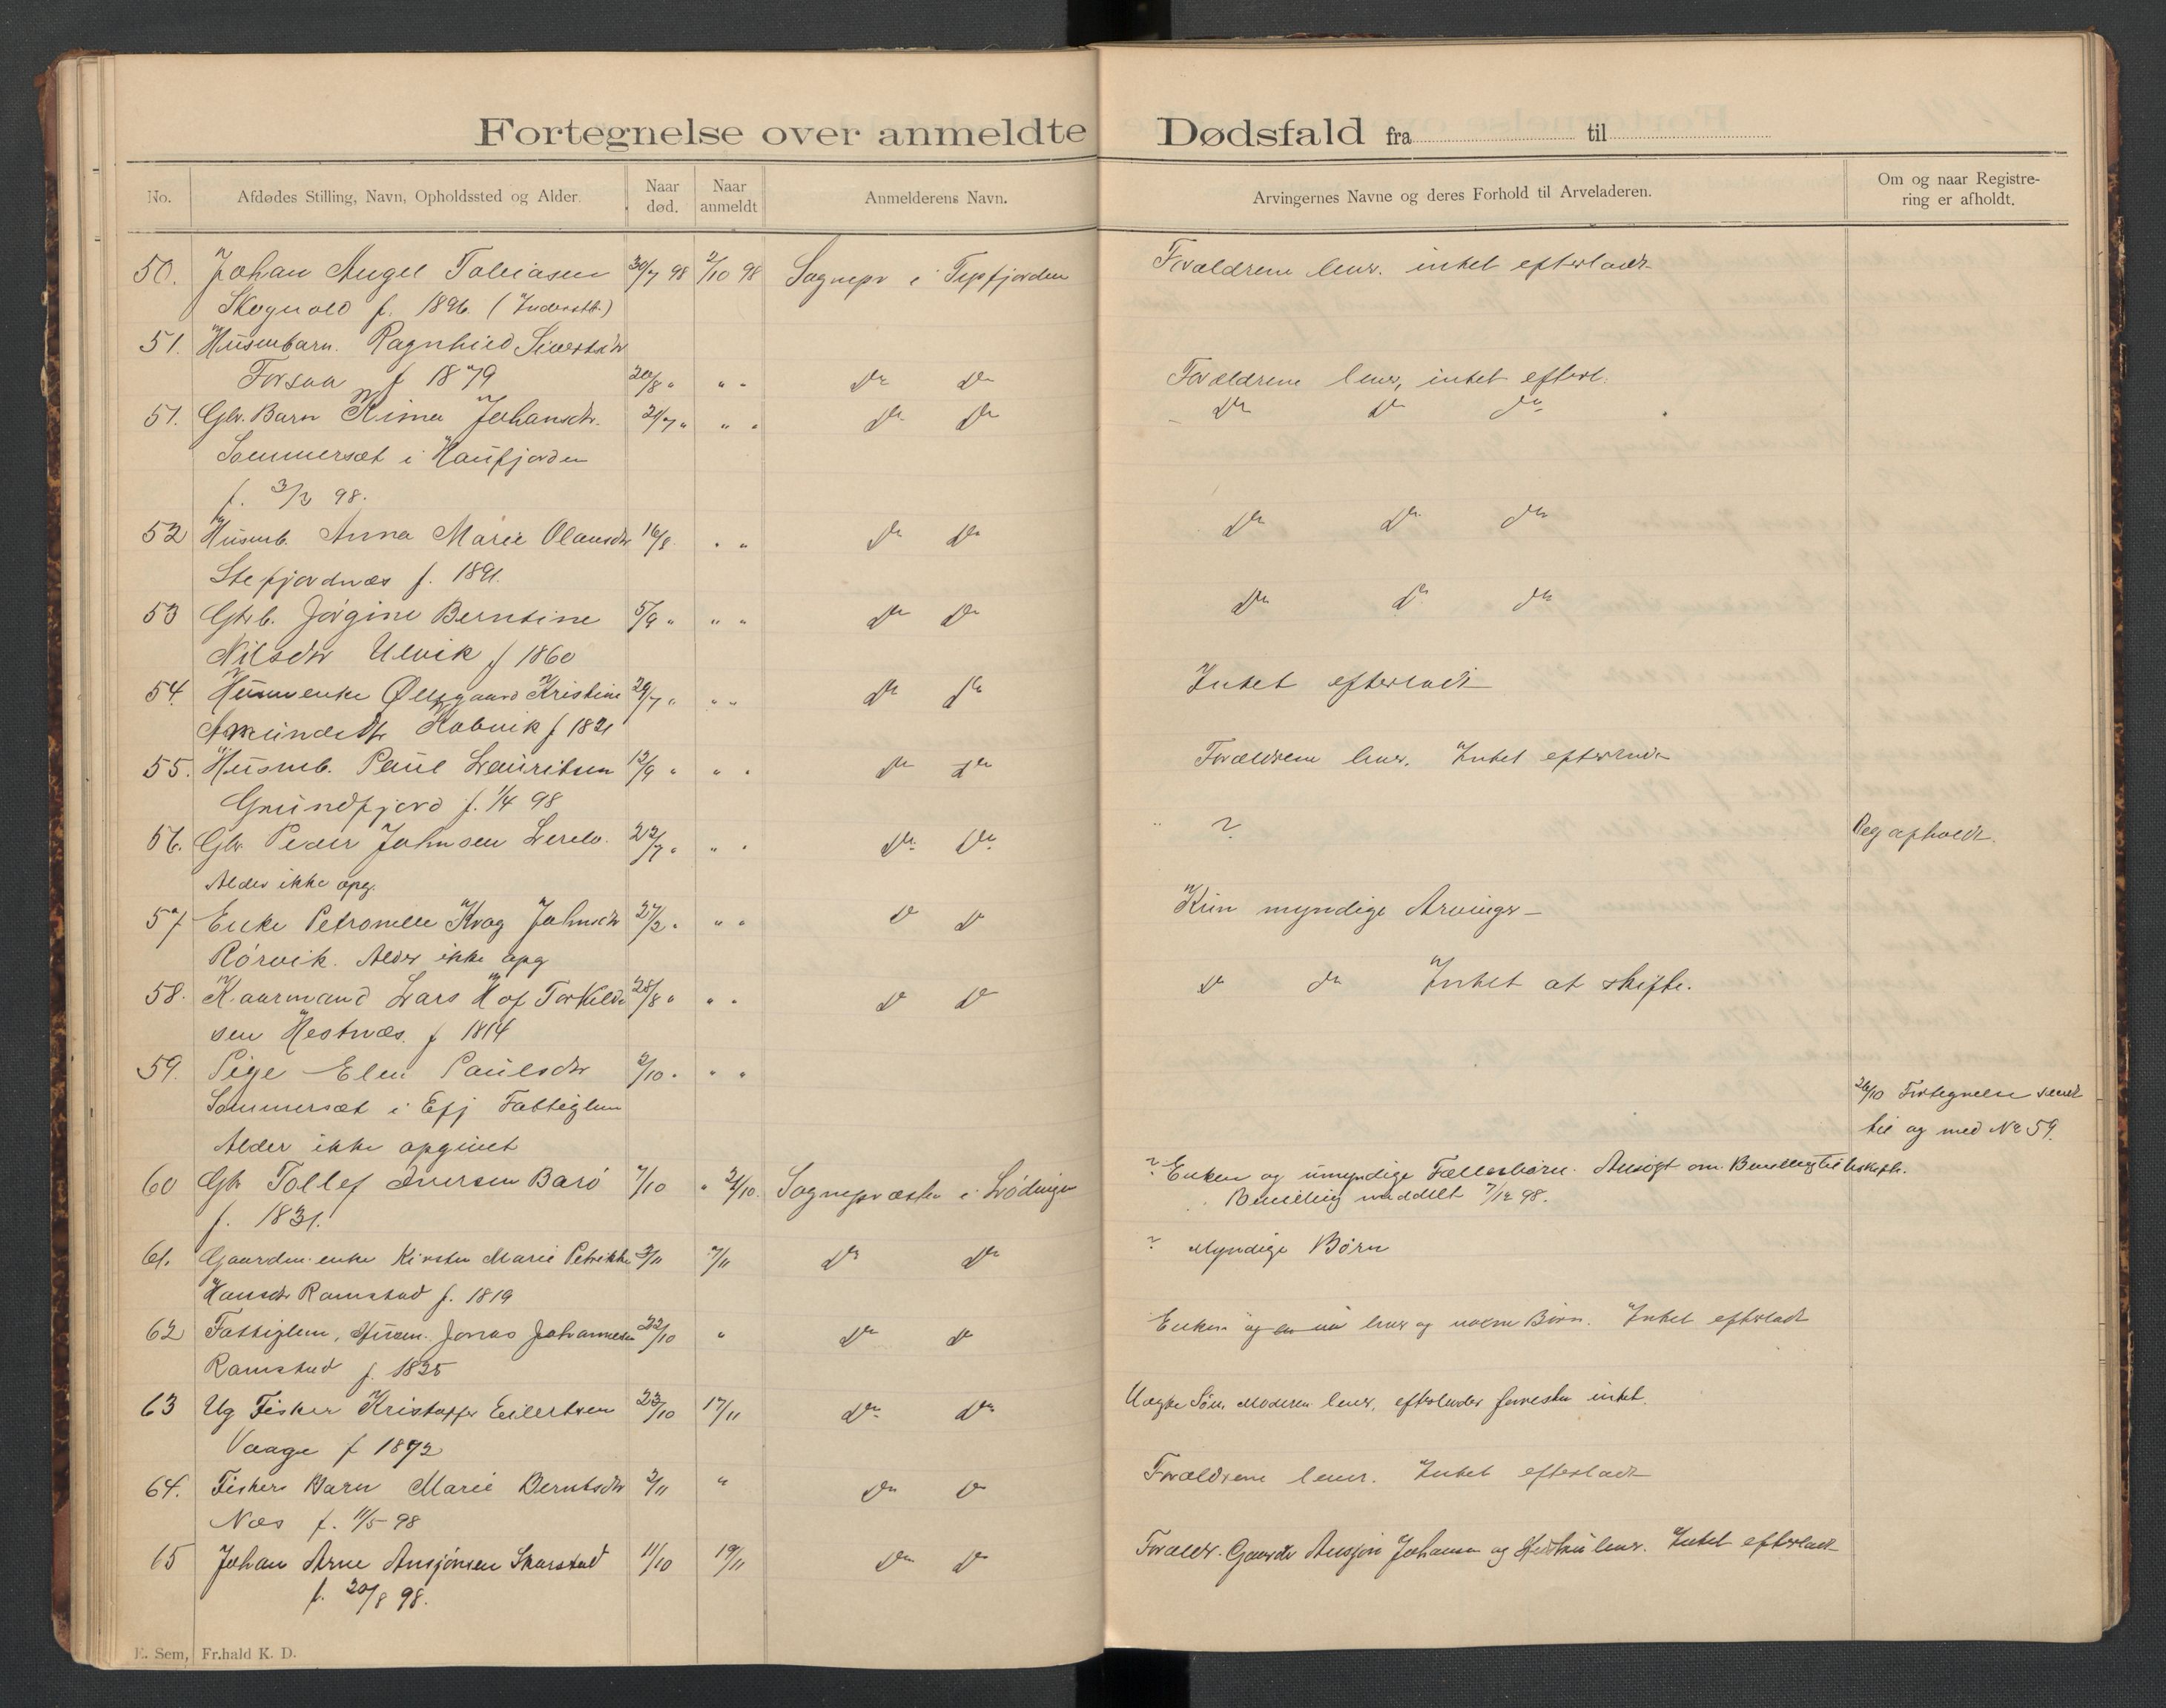 Fortegnelse over anmeldte Dødsfald fra til
No.
Afdødes Stilling, Navn, Opholdssted og Alder.
Naar død.
Naar anmeldt
Anmelderens Navn.
Arvingernes Navne og deres Forhold til Arveladeren.
Om og naar Registrering er afholdt.
50. Johan Angel Tobiasen 30/7 98 2/10 98 Sognepr i Forældrene lever. intet efterladt
f. 1896.
51. Husmbarn. Ragnhild Sivertsdtr
Forsaa f 1879 20/8 " " " Do Do Forældrene lever, intet efterl.
51. Gbr. Barn Johansdtr. 21/7 " " " Do Do Do Do Do
Sommersæt i
f. 3/2 98.
52 Husmb. Anna Marie Olausdtr 16/8 " " Do Do Do Do Do
Stefjordnæs f. 1891.
53 Gbrb. Jørgine Berntine 5/9 " " " Do Do Do Do Do
Nilsdtr Ulvik f 1860
54. Husmenke Øllegaard Kristine 29/7 " " " Do Do Intet efterladt
Amundsdtr f 1821
55. Husmb. Paul Lauritsen 12/9 " " " Do Do Forældrene lever. Intet efterladt
Grundfjord f. 1/4 98
56. Gbr. Peder Johnsen 22/7 " " " Do Do ? Reg afholdt.
Alder ikke opg.
57 Enke Petronelle Johnsdtr 27/2 " " " Do Do Kun myndige Arvinger
Rørvik. Alder ikke opg
58. Kaarmand Lars Hof Torkild 28/8 " " " Do Do Do Do Intet at skifte.
sen Hestnæs. f 1814
59. Pige Elen Paulsdtr 2/10 " " "
Sommersæt i Efj Fattiglem 26/10 Fortegnelse sendt
Alder ikke opgivet til og med No 59.
60 Gbr Tollef Iversen Barø 7/10 " Sognepræsten i Lødingen ? Enken og umyndige Fællesbørn. Ansøgt om Bevilling til
f. 1831. Bevilling meddelt 7/12 98.
61. Gaardm. enke Kirsten Marie Petrikke 3/11 7/11 Do Do ? Myndige Børn
Hansdtr Ramstad f. 1819
62 Fattiglem, Husm. Jonas Johannesen 22/10 " Do Do Enken og lever og voxne Børn. Intet efterladt
Ramstad f. 1825
63 Ug Fisker Kristoffer Eilertsen 23/10 17/11 Do Do Uægte Søn, Moderen lever, efterlader forresten intet.
Vaage f 1872
64. Fiskers Barn Marie Berntsdtr 2/11 " Do Do Forældrene lever. Intet efterladt
Næs f. 11/5 98
65 Johan Arne Ansjønsen Skarstad 11/10 19/11 Do Do Forældr. Gaardbr Ansjøn Johansen og Hustru lever. Intet efterladt
f. 20/8 98.
E. Sem, Fr.hald K. D.